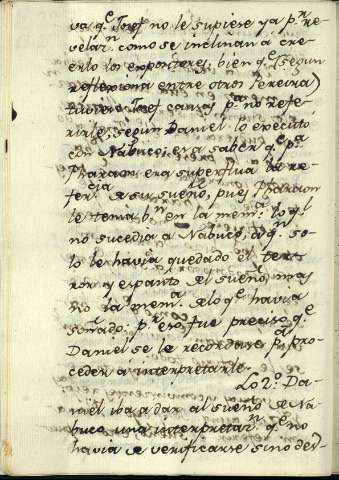 va q.e Josef no le supiese ya p.r re-
velar.n como se inclinan á cre-
erlo los expositores, bien q.e (segun
reflexiona entre otros Pereira)
tuviese Josef causa p.a no refe-
rirle, segun Daniel lo executó
con Nabuco; era saber q.e p.a
Pharaon era superflua la re-
fer.cia de su sueño, pues Pharaon
le tenia b.n en la mem.a lo q.l
no sucedia a Nabuco, á q.n so-
lo le havia quedado el terr-
ror y espanto del sueño, mas
no la mem.a de lo q.e havia
soñado. p.r eso fue preciso q.e
Daniel se le recordase p.a pro-
ceder a interpretarle.
Lo 2.o Da-
niel iba a dar al sueño de Na-
buco una interpretar.n q.e no
havia de verificarse sino des-